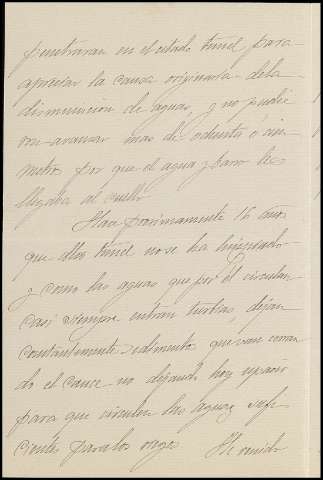 penetraran en el citado tunel para
apreciar la causa originaria de la
disminucion de aguas, y no pudie
ron avanzar mas de ochenta
metros por que el agua y barro les
llegaba al cuello
Hace proximamente 16 años
que dho tunel no se ha limpiado
y como las aguas que por él circulan
casi siempre entran turbias, dejan
constantemente sedimentos que van cerran
do el cauce no dejando hoy espacio
para que circulen las aguas sufi
cientes para los riegos He venido